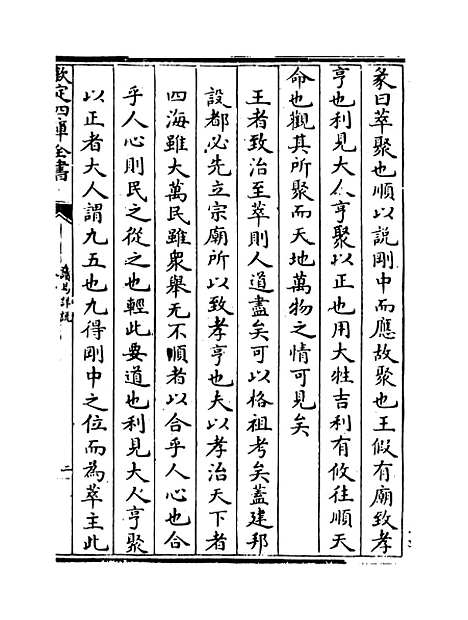 彖曰萃聚也順以說剛中而應故聚也王假有廟致孝
亨也利見大人亨聚以正也用大牲吉利有攸往順天
命也觀其所聚而天地萬物之情可見矣
王者致治至萃則人道盡矣可以格祖考矣蓋建邦
設都必先立宗廟所以致孝亨也夫以孝治天下者
四海雖大萬民雖衆舉无不順者以合乎人心也合
乎人心則民之從之也輕此要道也利見大人亨聚
以正者大人謂九五也九得剛中之位而為萃主此
欽定四庫全書
讀易詳說